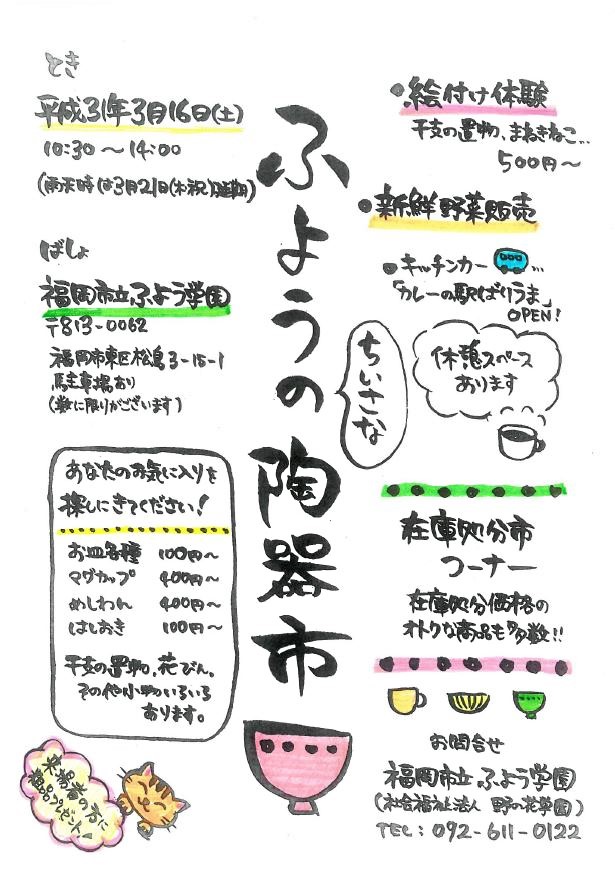 ふようの
ちいさな
陶器市
とき
平成31年3月16日(土)
10:30～14:00
(雨天時は3月21日(木祝)延期)
ばしょ
福岡市立ふよう学園
〒813-0062
福岡市東区松島3-15-1
駐車場あり
(数に限りがございます)
あなたのお気に入りを
探しにきてください!
お皿各種 100円～
マグカップ 400円～
めしわん 400円～
はしおき 100円～
干支の置物、花びん、
その他小物いろいろ
あります。
来場者の方に
粗品プレゼント
●絵付け体験
干支の置物、まねきねこ…
500円～
●新鮮野菜販売
●キッチンカー…
「カレーの駅ばりうま」
OPEN!
休憩スペース
あります
在庫処分市
コーナー
在庫処分価格の
オトクな商品も多数!!
お問合せ
福岡市立ふよう学園
(社会福祉法人 野の花学園)
TEL:092-611-0122